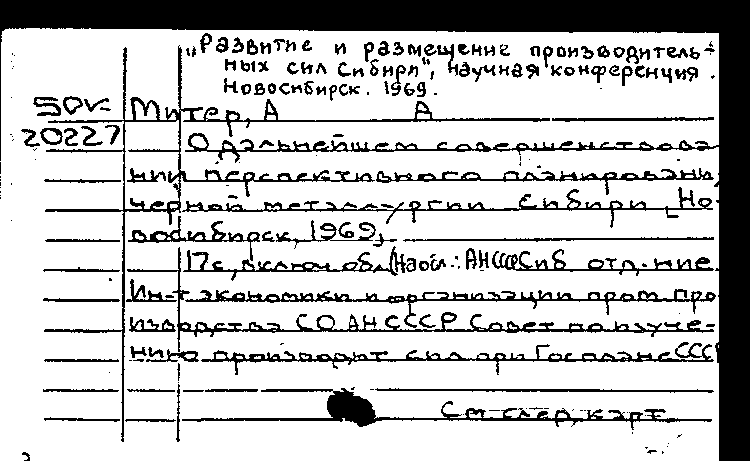 „Развитие и размещение производитель-
ных сил Сибири", научная конференция.
Новосибирск. 1969.
50к- Митер, А А
20227 О дальнейшем совершенствова
нии перспективного планировани
черной металлургии Сибири [Но-
восибирск, 1969,
17с, включ. обл. (Надзаг.: АНСССР Сиб отд-ние
Ин-т экономики и организации пром. про
изводства СО АНСССР Совет по изуче-
нию производит сил при Госплане СССР
См след, карт.